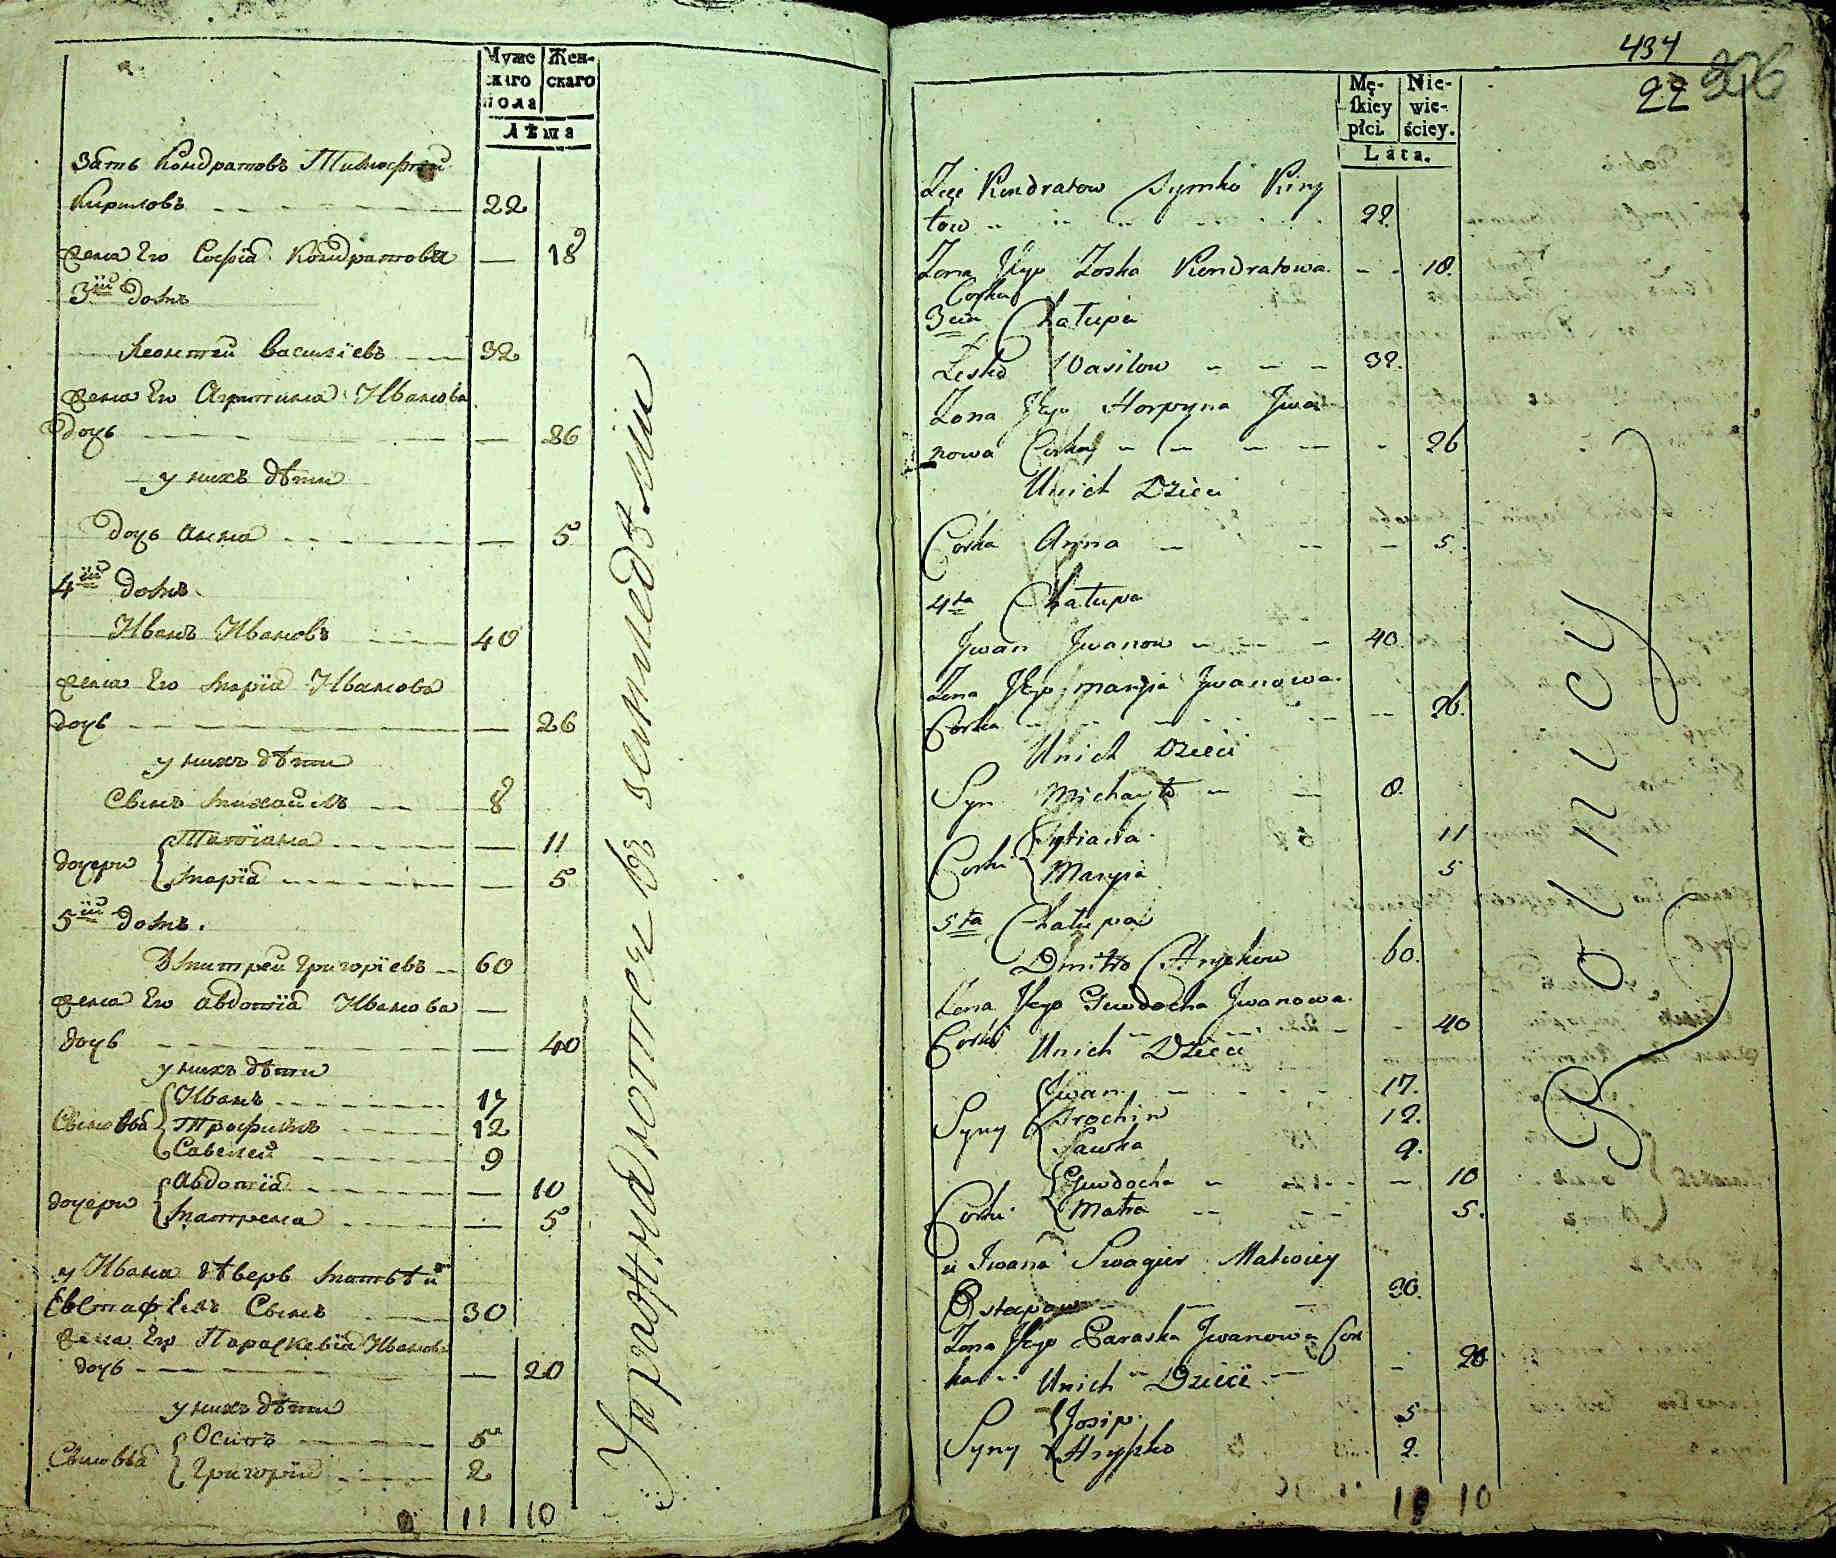 Муже
скаго
пола
Жен-
скаго
Лѣта
Зать Кондратовъ Тимофей
Кириловъ 22
жена Его Софїа Кондратова — 18
3ій домъ
Леонтей Василїевъ 32
жена Его Агрипина Иванова
дочь — 26
у нихъ дѣти
дочь Анна — 5
4ій домъ
Иванъ Ивановъ 40
жена Его Марїа Иванова
дочь — 26
у нихъ дѣти
Сынъ Михайлъ 8
дочери Татїана — 11
Марїа — 5
5ій домъ.
Дмитрей Григорїевъ 60
жена Его Авдотїа Иванова —
дочь — 40
у нихъ дѣти
Сыновьа Иванъ 17
Трофимъ 12
Савелей 9
дочери Авдотїа — 10
Матрена — 5
у Ивана дѣверь Матвѣй
Евстафїевъ Сынъ 30
жена Его Параскевїа Иванова
дочь — 20
у нихъ дѣти
Сыновьа Осипъ 5
Григорїй 2
11 10
Упражнаютсѧ въ земледѣлїи
434
22 206
Mę-
skiey
płci.
Nie-
wie-
ściey.
Lata.
Zięć Kondratow Tymko Kiry
łow 22.
Zona Jego Zoska Kondratowa - - 18.
Corka
3cia Chałupa
Lesko Wasilow 32.
Zona Jego Horpyna Jwa
nowa Corka - 26
Unich Dzieci
Corka Anna - 5.
4ta Chałupa
Jwan Jwanow 40.
Zona Jego Marysia Jwanowa.
Corka - 26.
Unich Dzieci
Syn Michayło 8.
Corki Tytianna. 11
Marysia 5
5ta Chałupa
Dmitro Hryckow 60.
Zona Jego Jewdocha Jwanowa.
Corka - 40
Unich Dzieci
Syny Jwan. 17.
Trochim 12.
Sawka 9.
Corki Jewdocha - 10
Matra 5.
u Jwana Swagier Matwiey
Ostapow 30.
Zona Jego Paraska Jwanowa Cor
ka - 20
Unich Dzieci
Syny Josip. 5
Hryszko 2.
11 10
Rolnicy